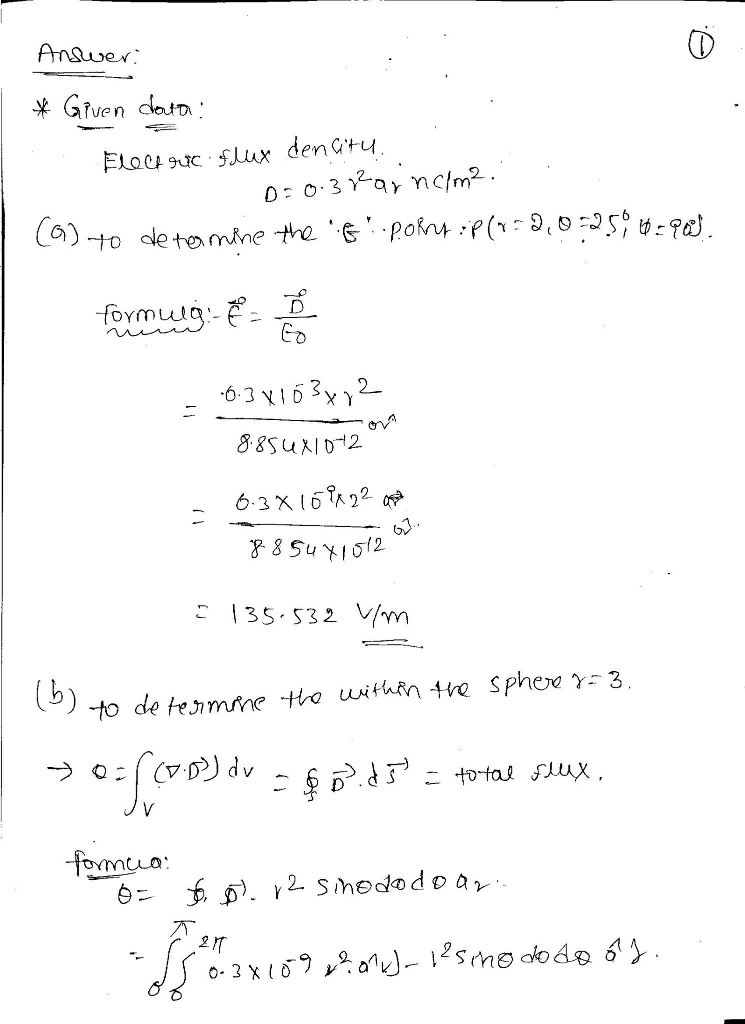 ①
Answer:
* Given data:
Electric flux density.
D = 0.3 r² ar nc/m².
(a) to determine the 'E' point : P(r = 2, θ = 25°, φ = 90°).
formula:- E = D / ε0
= 0.3 x 10 3 x r 2 / 8.854 x 10-12 ar
= 0.3 x 10 9 x 22 / 8.854 x 10 12
= 135.532 V/m
(b) to determine the within the sphere r = 3.
→ Q = ∫v (∇.D) dv = ∮s D.ds = total flux.
formula:
Q = ∮ D. r2 sinθ dθ dφ ar.
= ∫0 π ∫0 2π 0.3 x 10 9 r2. r2 sinθ dθ dφ